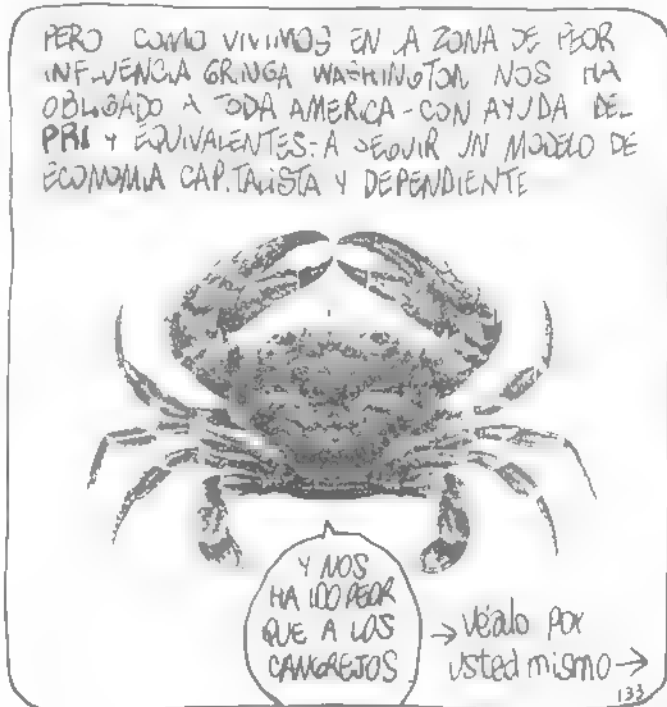 PERO COMO VIVIMOS EN LA ZONA DE PEOR
INFLUENCIA GRINGA WASHINGTON NOS HA
OBLIGADO A TODA AMERICA-CON AYUDA DEL
PRI Y EQUIVALENTES-A SEGUIR UN MODELO DE
ECONOMIA CAPITALISTA Y DEPENDIENTE
Y NOS
HA IDO PEOR
QUE A LOS
CANGREJOS
→ véalo por
usted mismo →
133